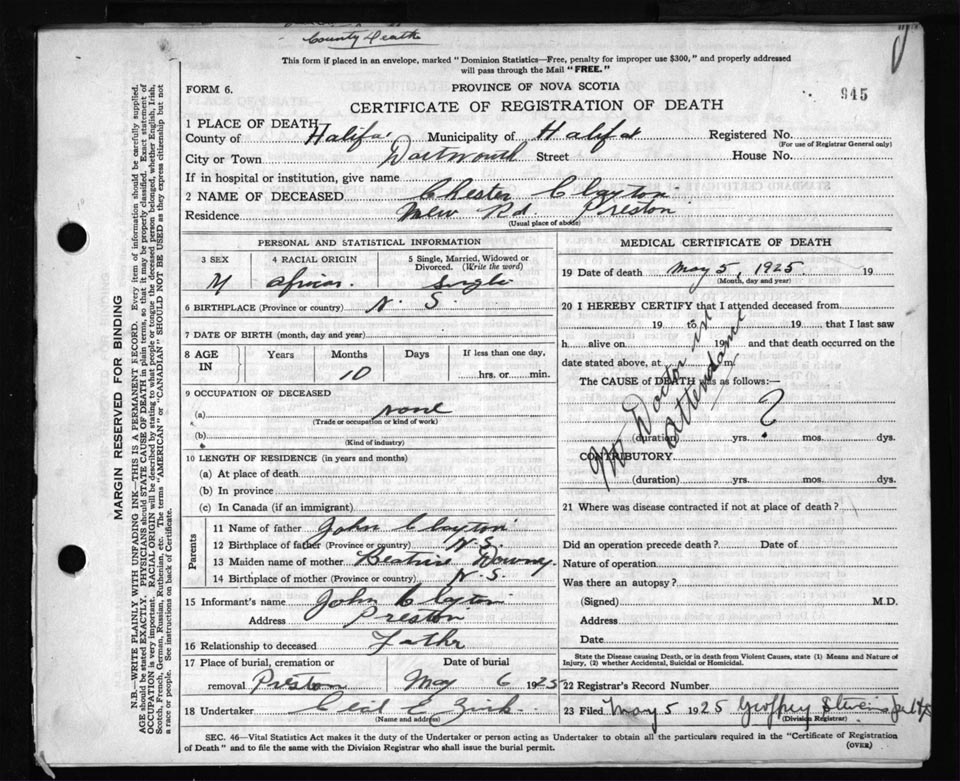 County Death
This form if placed in an envelope, marked "Dominion Statistics—Free, penalty for improper use $300," and properly addressed
will pass through the Mail "FREE."
FORM 6.
PROVINCE OF NOVA SCOTIA
945
CERTIFICATE OF REGISTRATION OF DEATH
1 PLACE OF DEATH
County of Halifax Municipality of Halifax Registered No.
(For use of Registrar General only)
City or Town Dartmouth Street House No.
If in hospital or institution, give name
2 NAME OF DECEASED Chester Clayton
Residence New Rd. Preston
(Usual place of abode)
PERSONAL AND STATISTICAL INFORMATION
3 SEX 4 RACIAL ORIGIN 5 Single, Married, Widowed or
Divorced. (Write the word)
M African Single
6 BIRTHPLACE (Province or country) N. S.
7 DATE OF BIRTH (month, day and year)
8 AGE IN Years Months Days If less than one day,
10 hrs. or min.
9 OCCUPATION OF DECEASED
(a) none
(Trade or occupation or kind of work)
(b)
(Kind of industry)
10 LENGTH OF RESIDENCE (in years and months)
(a) At place of death
(b) In province
(c) In Canada (if an immigrant)
Parents
11 Name of father John Clayton
12 Birthplace of father (Province or country) N.S.
13 Maiden name of mother Beatrice Downy
14 Birthplace of mother (Province or country) N.S.
15 Informant's name John Clayton
Address Preston
16 Relationship to deceased Father
17 Place of burial, cremation or Date of burial
removal Preston May 6 1925
18 Undertaker Cecil E. Zink
(Name and address)
MEDICAL CERTIFICATE OF DEATH
19 Date of death May 5, 1925. 19
(Month, day and year)
20 I HEREBY CERTIFY that I attended deceased from
19 to 19 that I last saw
h alive on 19 and that death occurred on the
date stated above, at m.
The CAUSE of DEATH was as follows:—
No Doctor in
attendance
?
(duration) yrs. mos. dys.
CONTRIBUTORY
(duration) yrs. mos. dys.
21 Where was disease contracted if not at place of death?
Did an operation precede death? Date of
Nature of operation
Was there an autopsy?
(Signed) M.D.
Address
Date
State the Disease causing Death, or in death from Violent Causes, state (1) Means and Nature of
Injury, (2) whether Accidental, Suicidal or Homicidal.
22 Registrar's Record Number
23 Filed May 5 1925 Geoffrey
(Division Registrar)
SEC. 46—Vital Statistics Act makes it the duty of the Undertaker or person acting as Undertaker to obtain all the particulars required in the "Certificate of Registration
of Death" and to file the same with the Division Registrar who shall issue the burial permit.
(OVER)
MARGIN RESERVED FOR BINDING
N.B.—WRITE PLAINLY WITH UNFADING INK—THIS IS A PERMANENT RECORD. Every item of information should be carefully supplied.
AGE should be stated EXACTLY. PHYSICIANS should STATE CAUSE OF DEATH in plain terms, so that it may be properly classified. Exact statement of
OCCUPATION is very important. RACIAL ORIGIN will be described by stating to what people or tongue the deceased person belonged, whether English, Irish,
Scotch, French, German, Russian, Ruthenian, etc. The terms "AMERICAN" or "CANADIAN" SHOULD NOT BE USED as they express citizenship but not
a race or people. See instructions on back of Certificate.